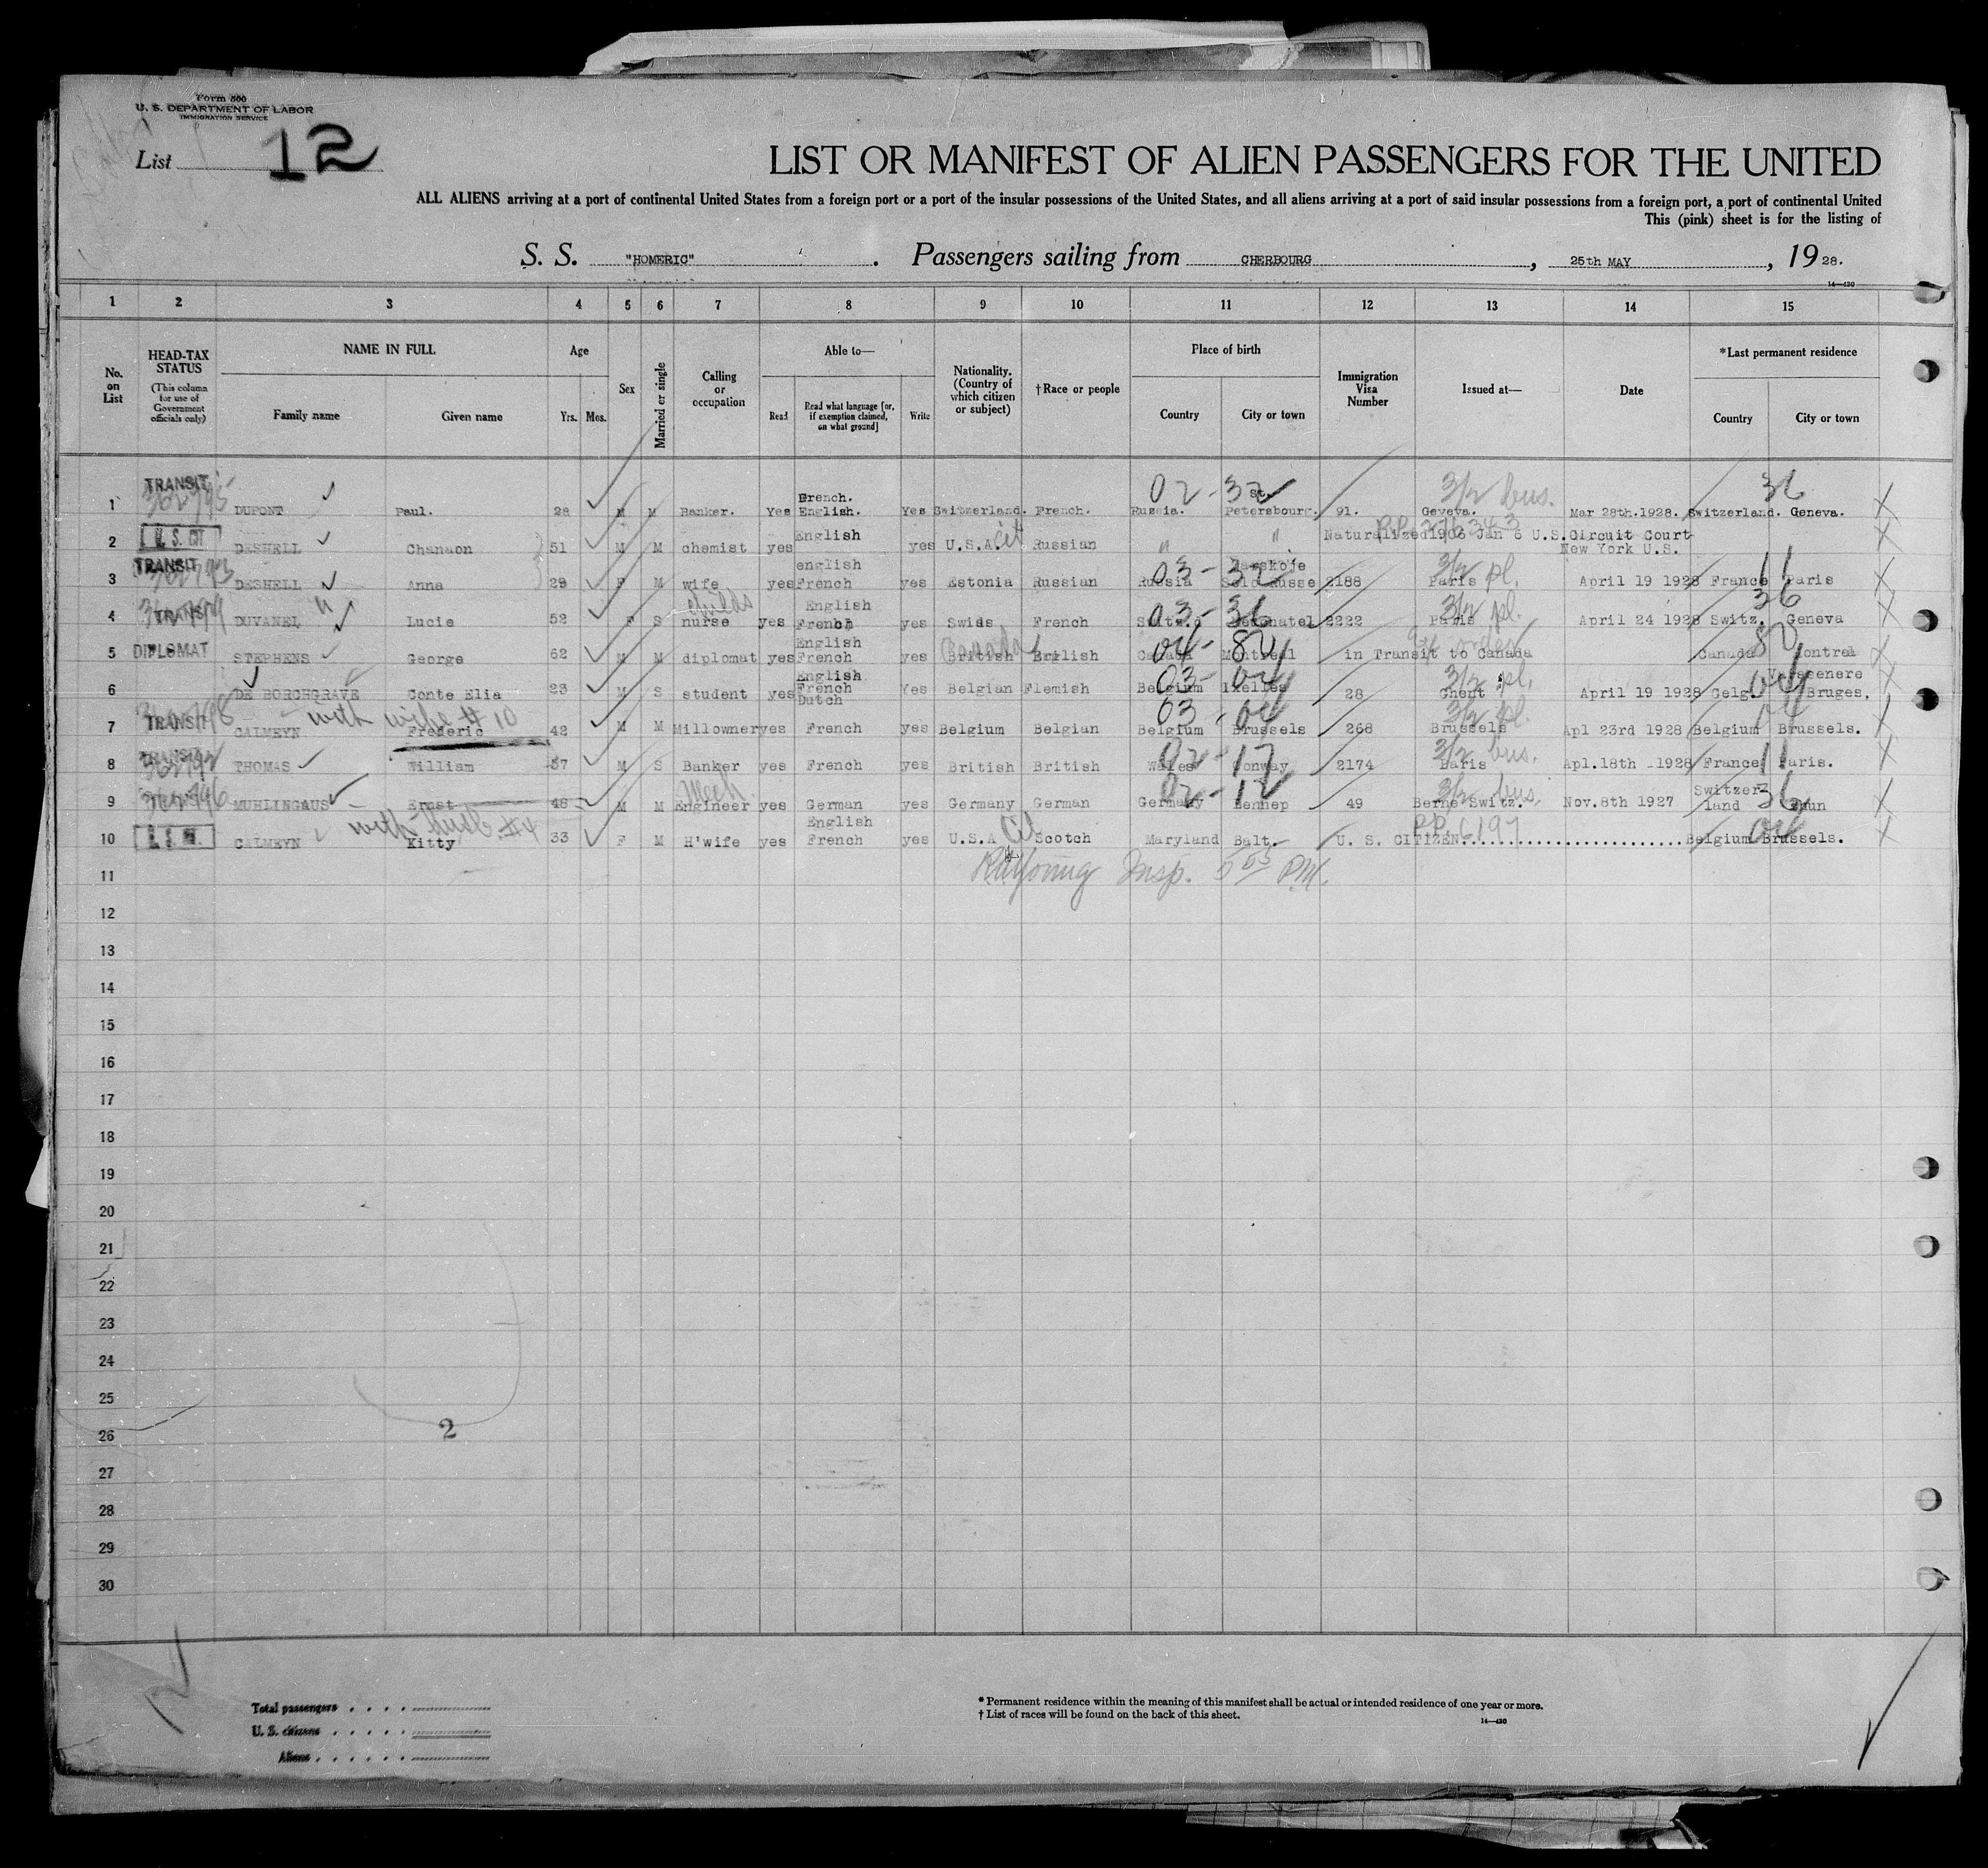 Form 500
U. S. DEPARTMENT OF LABOR
IMMIGRATION SERVICE
List 12
LIST OR MANIFEST OF ALIEN PASSENGERS FOR THE UNITED
ALL ALIENS arriving at a port of continental United States from a foreign port or a port of the insular possessions of the United States, and all aliens arriving at a port of said insular possessions from a foreign port, a port of continental United
This (pink) sheet is for the listing of
S. S. "HOMERIC". Passengers sailing from CHERBOURG, 25th MAY, 1928.
14—430
1 2 3 4 5 6 7 8 9 10 11 12 13 14 15
No. on List
HEAD-TAX STATUS (This column for use of Government officials only)
NAME IN FULL Family name Given name
Age Yrs. Mos.
Sex
Married or single
Calling or occupation
Able to— Read Read what language [or, if exemption claimed, on what ground] Write
Nationality. (Country of which citizen or subject)
†Race or people
Place of birth Country City or town
Immigration Visa Number
Issued at—
Date
*Last permanent residence Country City or town
1 TRANSIT DUPONT Paul. 28 M M Banker. Yes French. English. Yes Switzerland. French. 02-32 Russia. St. Petersbourg. 91. 3/2 bus. Geveva. Mar 28th.1928. 36 Switzerland. Geneva.
2 U.S. CIT DESHELL Chanaon 51 M M chemist yes English yes U.S.A. cit Russian " " Naturalized 1906 Jan 6 U.S. Circuit Court New York U.S.
3 TRANSIT DESHELL Anna 29 F M wife yes english French yes Estonia Russian 03-32 Russia 2188 3/2 pl. Paris April 19 1928 11 France Paris
4 TRANSIT DUVANEL " Lucie 52 F S childs nurse yes English French yes Swids French 03-36 2222 3/2 pl. Paris April 24 1928 36 Switz. Geneva
5 DIPLOMAT STEPHENS George 62 M M diplomat yes English French yes British British 04-80 Canada Montreal in Transit to Canada 80 Canada
6 DE BORCHGRAVE Conte Elia 23 M S student yes English French Dutch Yes Belgian Flemish 03-04 Belgium Ixelles 28 3/2 pl. Ghent April 19 1928 Gelg. 04 Bruges.
7 TRANSIT CALMEYN with wife #10 Frederic 42 M M Millowner yes French yes Belgium Belgian 03-04 Belgium Brussels 268 3/2 pl. Brussels Apl 23rd 1928 04 Belgium Brussels.
8 TRANSIT THOMAS William 57 M S Banker yes French yes British British 02-17 Wales Conway 2174 3/2 bus. Paris Apl.18th 1928 11 France Paris.
9 MUHLINGAUS Ernst 48 M M Mech. Engineer yes German yes Germany German 02-12 Germany Lennep 49 3/2 bus. Berne Switz. Nov.8th 1927 Switzer-land 36 Thun
10 CALMEYN with husb #4 Kitty 33 F M H'wife yes English French yes U.S.A Cit Scotch Maryland Balt. U. S. CITIZEN PP. 6197 Belgium 04 Brussels.
11 Insp. 5 PM.
12
13
14
15
16
17
18
19
20
21
22
23
24
25
26 2
27
28
29
30
Total passengers
U. S. citizens
Aliens
* Permanent residence within the meaning of this manifest shall be actual or intended residence of one year or more.
† List of races will be found on the back of this sheet.
14—430